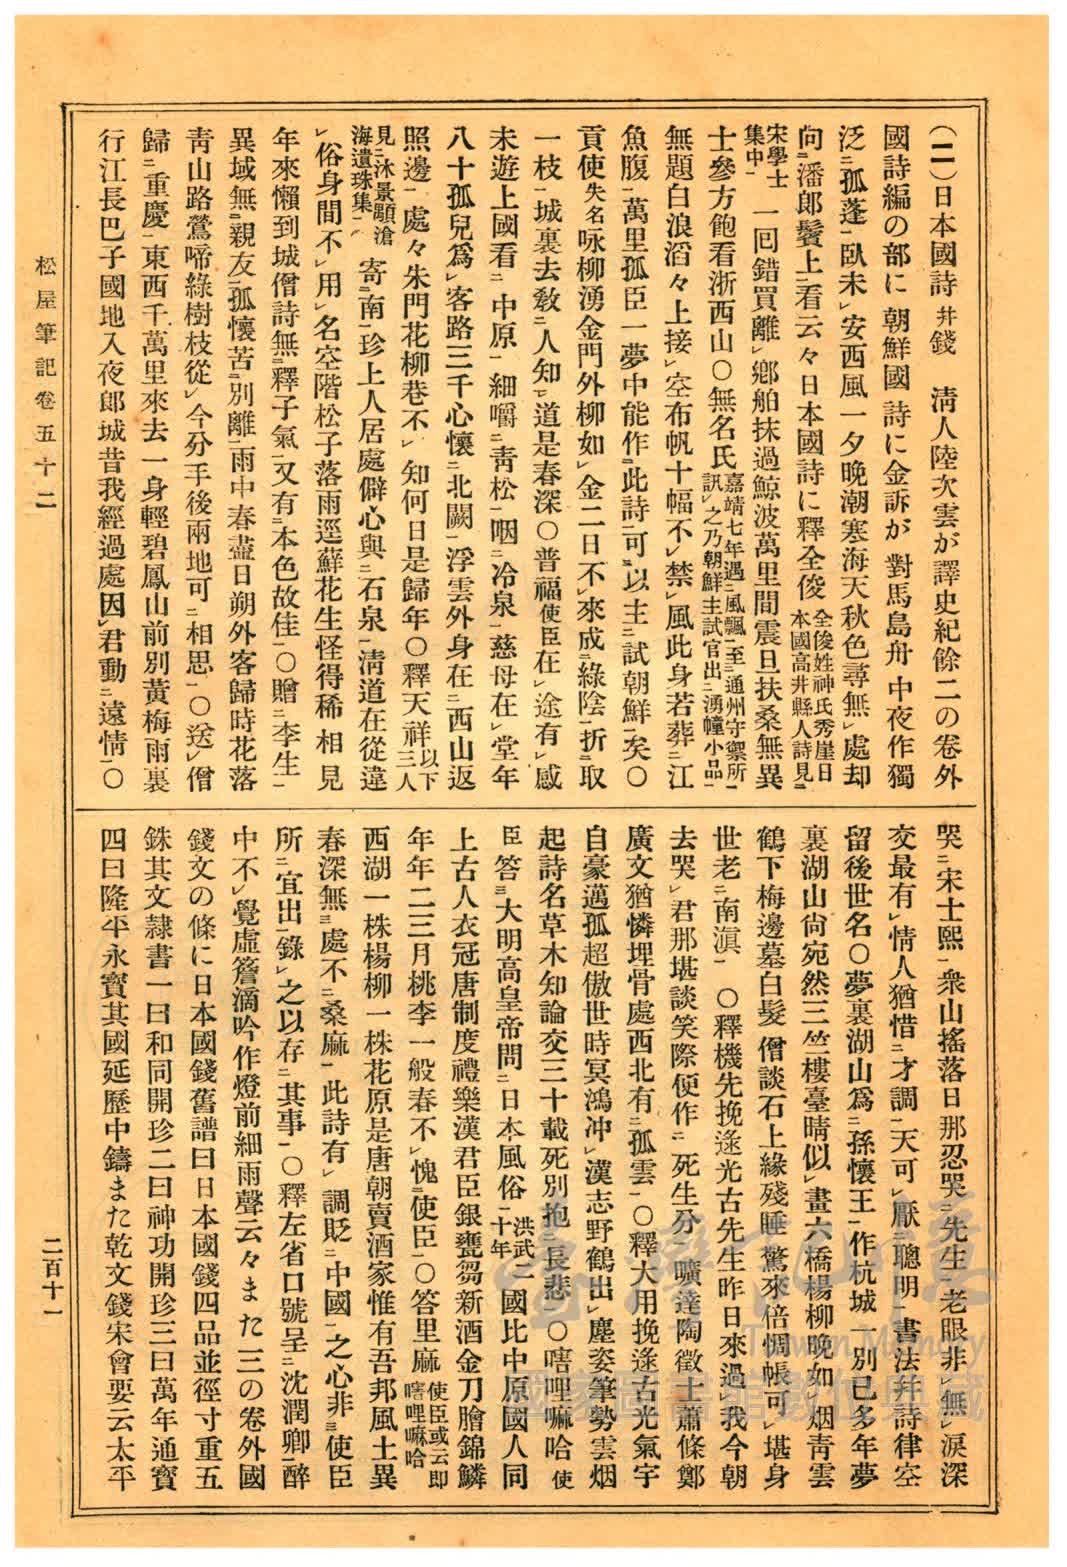 (二)日本國詩幷錢　淸人陸次雲が譯史紀餘二の卷外
國詩編の部に 朝鮮國 詩に金訴が 對馬島舟 中夜作獨
泛ニ孤蓬一臥未レ安西風一夕晩潮寒海天秋色尋無レ處却
向ニ潘郎鬢上ニ看云々日本國詩に釋全俊全俊姓神氏秀崖日本國高井縣人詩見ニ
宋學士集中一 一囘錯買離レ鄕舶抹過鯨波萬里間震旦扶桑無異
士參方飽看浙西山〇無名氏嘉靖七年遇ニ風飄一至ニ通州守禦所一訊レ之乃朝鮮主試官出ニ湧幢小品一
無題白浪滔々上接レ空布帆十幅不レ禁レ風此身若葬ニ江
魚腹一萬里孤臣一夢中能作ニ此詩一可ニ以主ニ試朝鮮一矣〇
貢使失名咏柳湧金門外柳如レ金二日不レ來成ニ綠陰一折ニ取
一枝一城裏去敎ニ人知一レ道是春深〇普福使臣在レ途有レ感
未遊上國看ニ中原一細嚼ニ靑松一咽ニ冷泉一慈母在レ堂年
八十孤兒爲レ客路三千心懷ニ北闕一浮雲外身在ニ西山返
照邊一處々朱門花柳巷不レ知何日是歸年〇釋天祥以下三人
見ニ沐景顒滄海遺珠集一 寄ニ南一珍上人居處僻心與ニ石泉一淸道在從違
レ俗身間不レ用レ名空階松子落雨逕蘚花生怪得稀 相見
年來懶到城僧詩無ニ釋子氣一又有ニ本色故佳一〇贈ニ李生一
異域無ニ親友一孤懷苦ニ別離一雨中春盡日朔外客歸時花落
靑山路鶯啼綠樹枝從レ今分手後兩地可ニ相思一〇送レ僧
歸ニ重慶一東西千萬里來去一身輕碧鳳山前別黃梅雨裏
行江長巴子國地入夜郎城昔我經過處因レ君動ニ遠情一〇
哭ニ宋士熙一衆山搖落日那忍哭ニ先生一老眼非レ無レ淚深
交最有レ情人猶惜ニ才調一天可レ厭ニ聰明一書法幷詩律空
留後世名〇夢裏湖山爲ニ孫懷王一作杭城一別已多年夢
裏湖山尙宛然三竺樓臺晴似レ畫六橋楊柳晩如レ烟靑雲
鶴下梅邊墓白髮僧談石上緣殘睡一驚來倍惆悵可レ堪身
世老ニ南滇一〇釋機先挽逯光古先生昨日來過レ我今朝
去哭レ君那堪談笑際便作ニ死生分一曠達陶徵士蕭條鄭
廣文猶憐埋骨處西北有ニ孤雲一〇釋大用挽逯古光氣宇
自豪邁孤超傲世時冥鴻冲レ漢志野鶴出レ塵姿筆勢雲烟
起詩名草木知論交三十載死別抱ニ長悲一〇嗐哩嘛哈使
臣 答三大明高皇帝問ニ日本風俗一洪武二十年國比中原國人同
上古人衣冠唐制度禮樂漢君臣銀甕芻新酒金刀膾錦鱗
年年二三月桃李一般春不レ愧ニ使臣一〇答里麻使臣或云卽嗐哩嘛哈
西湖一株楊柳一株花原是唐朝賣酒家惟有吾邦風土異
春深無三處不ニ桑麻一此詩有レ調貶ニ中國一之心非ニ使臣
所ニ宜出一錄レ之以存ニ其事一〇釋左省口號呈ニ沈潤卿一醉
中不レ覺虛簷滴吟作燈前細雨聲云々また三の卷外國
錢文の條に日本國錢舊譜曰日本國錢四品並徑寸重五
銖其文隸書一曰和同開珍二曰神功開珍三曰萬年通寶
四曰隆平永寶其國延歷中鑄また乾文錢宋會要云太平
松屋筆記卷五十二
二百十一
臺灣記憶
Taiwan Memory
國家圖書館數位典藏